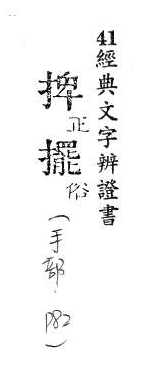 41經典文字辨證書
捭正
擺俗
(手部.P82)